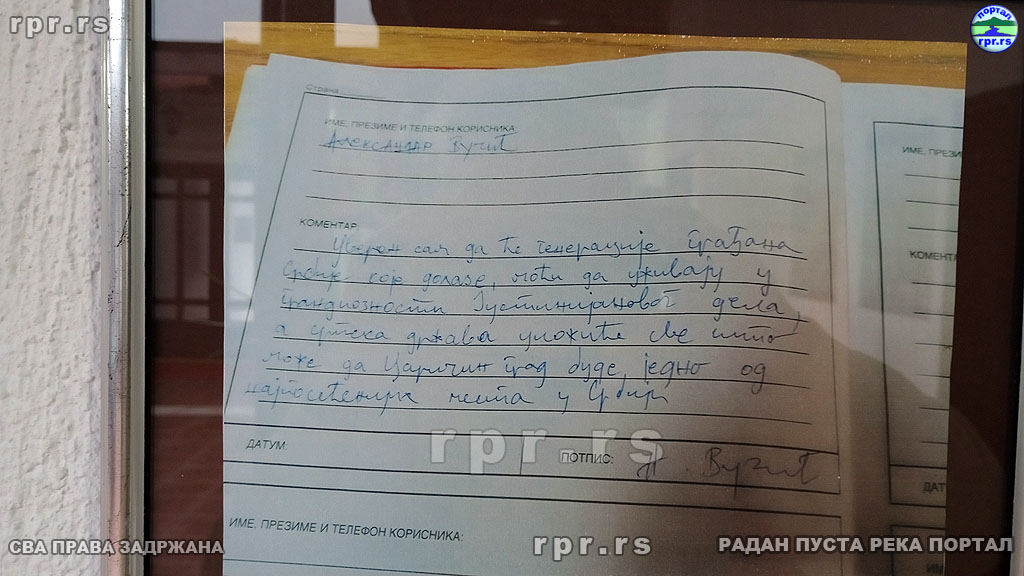 rpr.rs
портал
rpr.rs
Страна
ИМЕ, ПРЕЗИМЕ И ТЕЛЕФОН КОРИСНИКА:
Александар Вучић
КОМЕНТАР:
Уверен сам да ће генерације грађана
Србије које долазе, моћи да уживају у
грандиозности Јустинијановог дела,
а српска држава уложиће све што
може да Царичин град буде једно од
најпосећенијих места у Србији
ДАТУМ:
ПОТПИС: А. Вучић
ИМЕ, ПРЕЗИМЕ И ТЕЛЕФОН КОРИСНИКА:
ИМЕ, ПРЕЗИ
КОМЕНТА
ДАТ
ИМ
rpr.rs
СВА ПРАВА ЗАДРЖАНА
rpr.rs
РАДАН ПУСТА РЕКА ПОРТАЛ